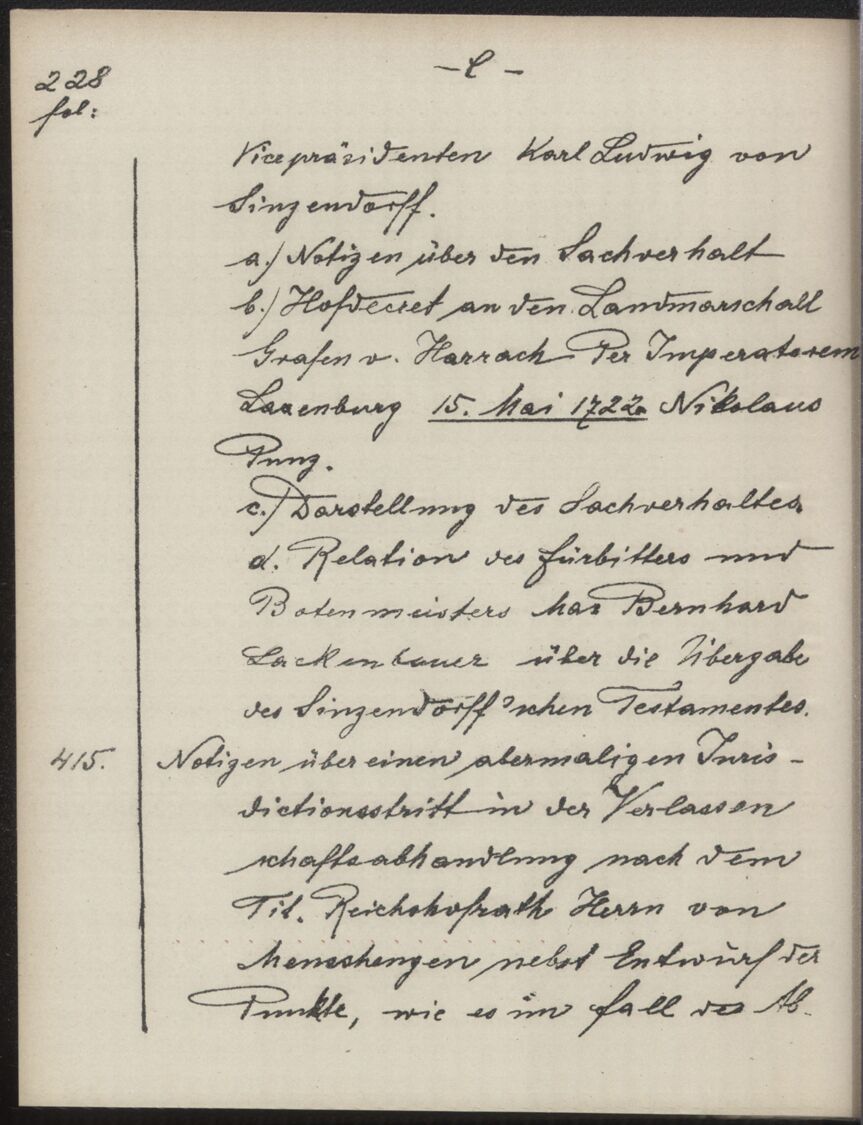 228
fol:
– C –
Vicepräsidenten Karl Ludwig von
Sinzendorff.
a.) Notizen über den Sachverhalt
b.) Hofdecret an den Landmarschall
Grafen v. Harrach Per Imperatorem
Laxenburg 15. Mai 1722. Nikolaus
Punz.
c.) Darstellung des Sachverhaltes
d. Relation des Fürbitters und
Botenmeisters Max Bernhard
Lackenbauer über die Übergabe
des Sinzendorff'schen Testamentes.
415. Notizen über einen abermaligen Juris-
dictionsstritt in der Verlassen
schaftsabhandlung nach dem
Tit. Reichshofrath Herrn von
Mensshengen nebst Entwurf der
Punkte, wie es im Fall des Ab-